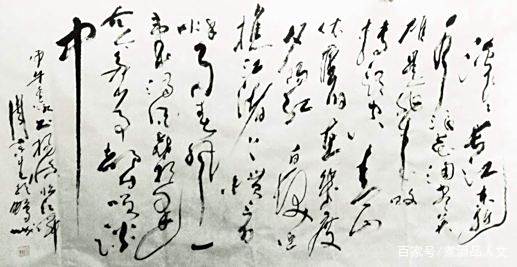 滚滚长江东逝
水浪花淘尽英
雄是非成败
转头空青山
依旧在几度
夕阳红白发渔
樵江渚上惯看
秋月春风一
壶浊酒喜相逢
古今多少事都付笑谈
中
书杨慎临江仙
百家号/煮酒品人文